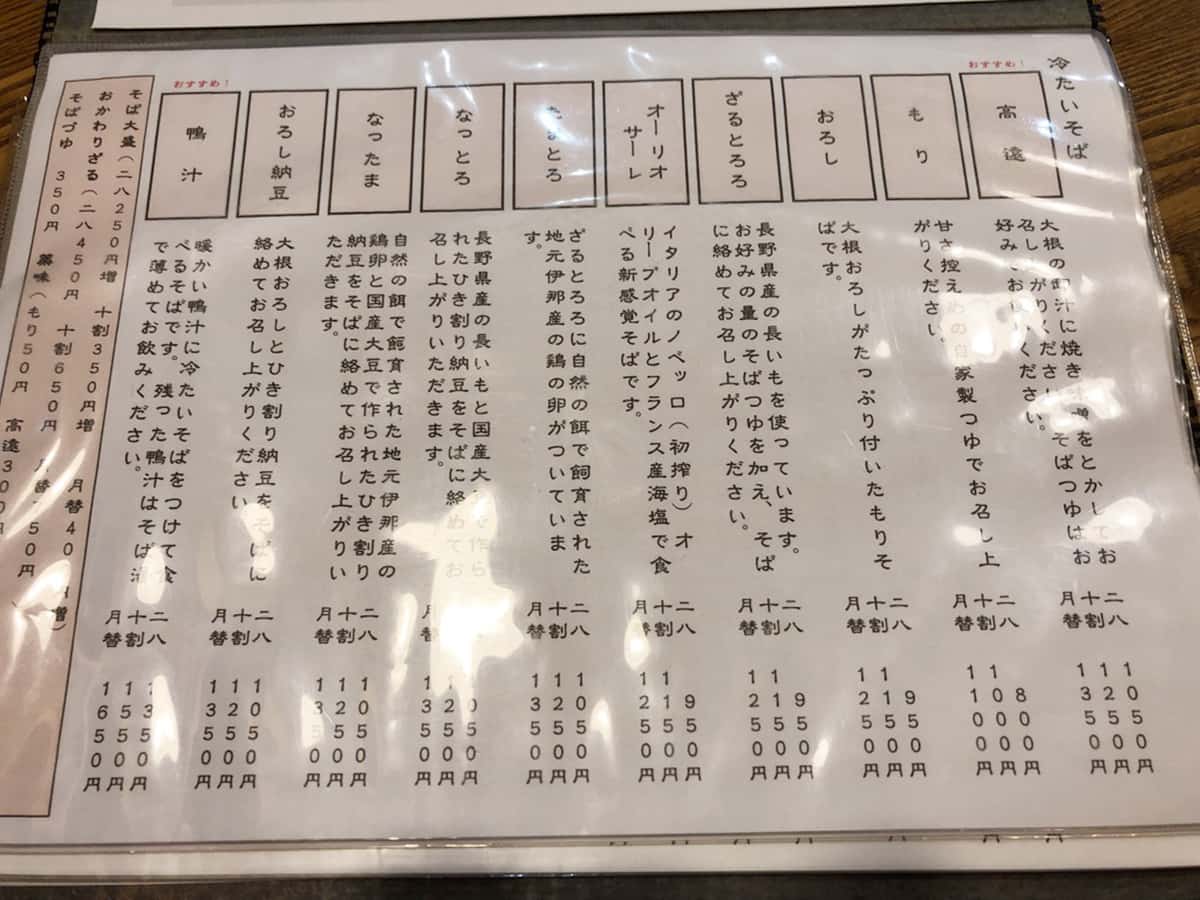 冷たいそば
おすすめ!
高遠
大根の卸汁に焼き味噌をとかしてお
召し上がりください。そばつゆはお
好みでお使いください。
二八 1050円
十割 1250円
月替 1350円
もり
甘さ控えめの自家製つゆでお召し上
がりください。
二八 800円
十割 1000円
月替 1100円
おろし
大根おろしがたっぷり付いたもりそ
ばです。
二八 950円
十割 1150円
月替 1250円
ざるとろろ
長野県産の長いもを使っています。
お好みの量のそばつゆを加え、そば
に絡めてお召し上がりください。
二八 950円
十割 1150円
月替 1250円
オーリオ
サーレ
イタリアのノベッロ(初搾り)オ
リーブオイルとフランス産海塩で食
べる新感覚そばです。
二八 950円
十割 1150円
月替 1250円
たまとろ
ざるとろろに自然の餌で飼育された
地元伊那産の鶏の卵がついていま
す。
二八 1050円
十割 1250円
月替 1350円
なっとろ
長野県産の長いもと国産大豆で作ら
れたひき割り納豆をそばに絡めてお
召し上がりいただきます。
二八 1050円
十割 1250円
月替 1350円
なったま
自然の餌で飼育された地元伊那産の
鶏卵と国産大豆で作られたひき割り
納豆をそばに絡めてお召し上がりい
ただきます。
二八 1050円
十割 1250円
月替 1350円
おろし納豆
大根おろしとひき割り納豆をそばに
絡めてお召し上がりください
二八 1050円
十割 1250円
月替 1350円
おすすめ!
鴨汁
暖かい鴨汁に冷たいそばをつけて食
べるそばです。残った鴨汁はそば湯
で薄めてお飲みください。
二八 1350円
十割 1550円
月替 1650円
そば大盛(二八250円増 十割350円増 月替400円増)
おかわりざる(二八450円 十割650円 月替750円)
そばづゆ 350円 薬味(もり50円 高遠300円